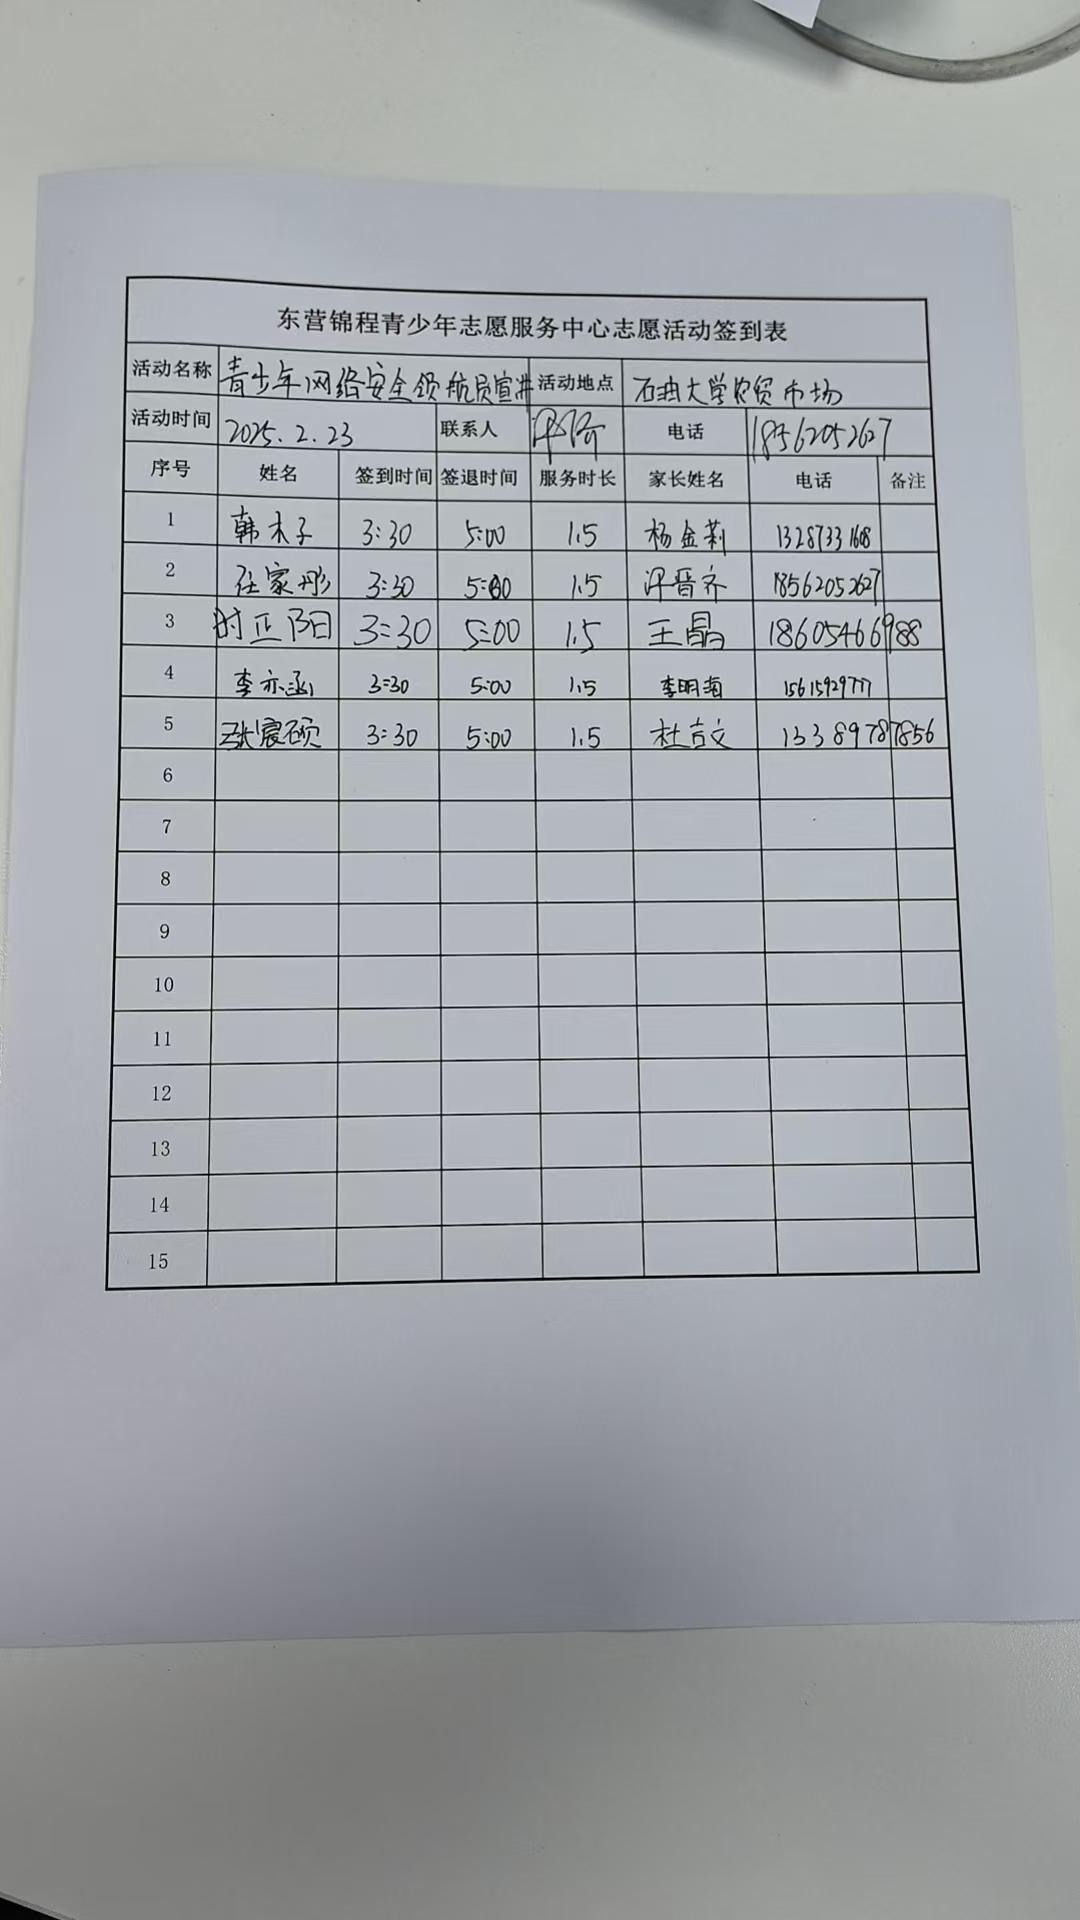 东营锦程青少年志愿服务中心志愿活动签到表
活动名称 青少年网络安全领航员宣讲 活动地点 石油大学农贸市场
活动时间 2025.2.23 联系人 电话 18562052627
序号 姓名 签到时间 签退时间 服务时长 家长姓名 电话 备注
1 韩木子 3:30 5:00 1.5 杨金莉 13287331608
2 任家彤 3:30 5:00 1.5 晋齐 18562052627
3 时正阳 3:30 5:00 1.5 王晶 18605466988
4 李亦涵 3:30 5:00 1.5 李明海 15615929777
5 张宸硕 3:30 5:00 1.5 杜吉文 13389787856
6
7
8
9
10
11
12
13
14
15